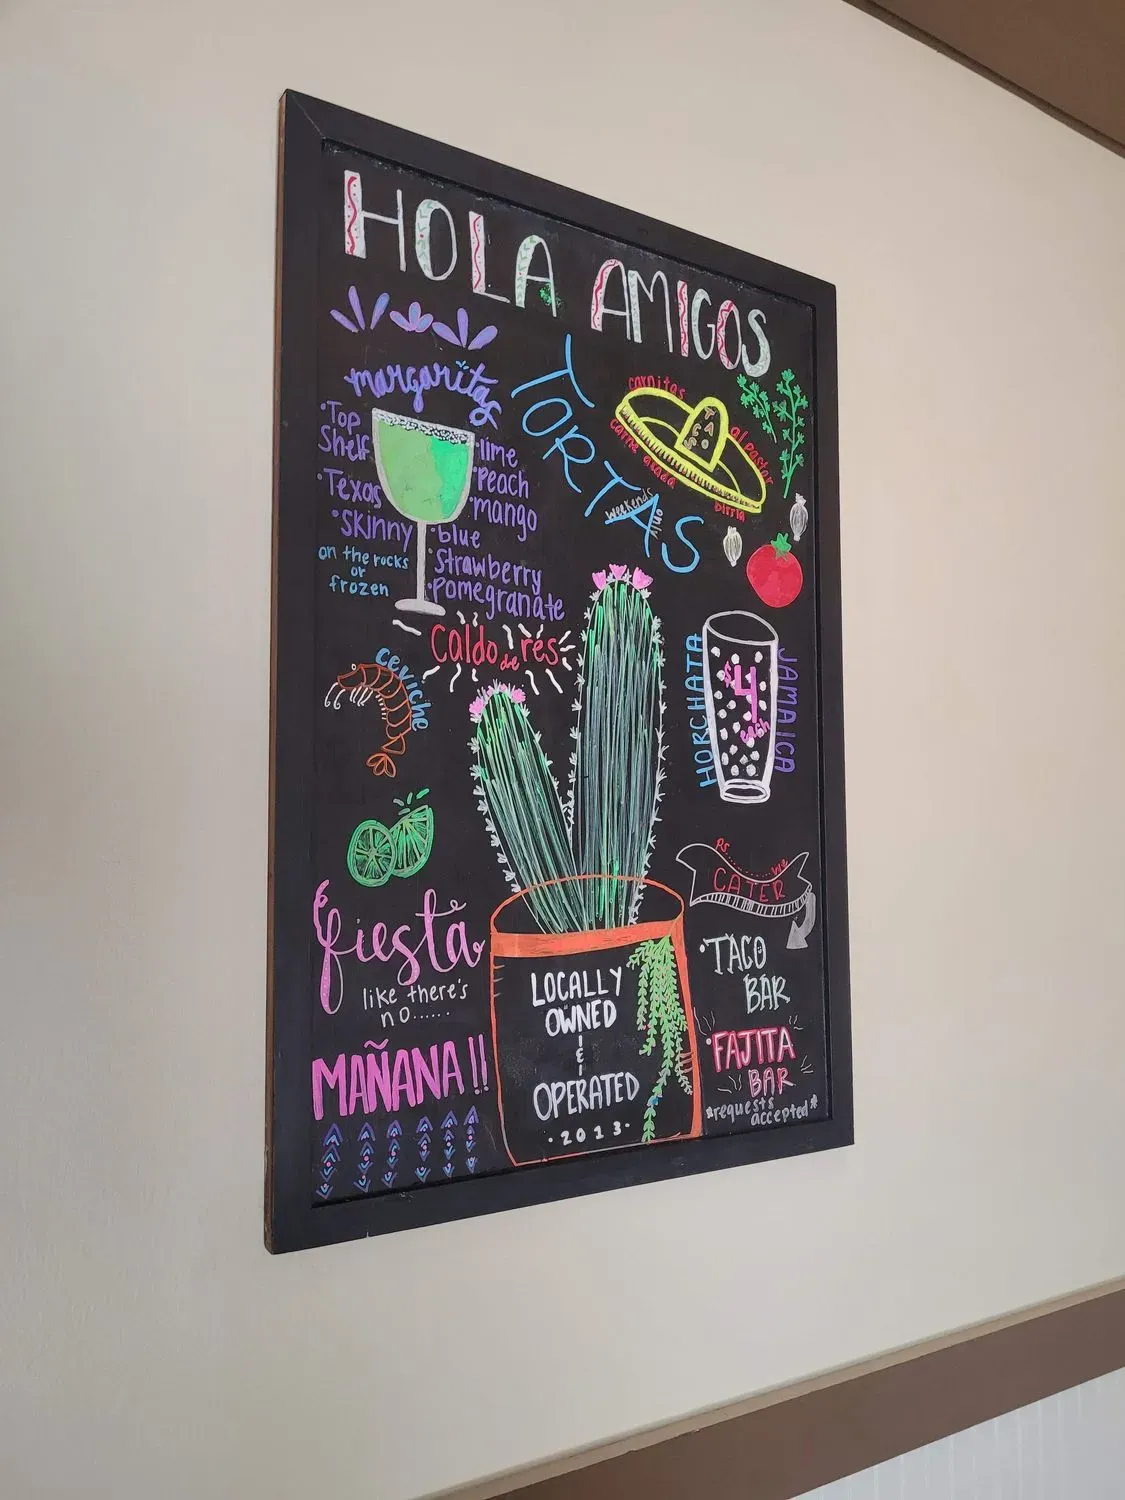 HOLA AMIGOS
margaritas
•Top
Shelf
•Texas
•Skinny
on the rocks
or
frozen
•lime
•Peach
•mango
•blue
•Strawberry
•Pomegranate
TORTAS
carnitas
TACOS
al pastor
carne asada
birria
weekends
only
Caldo de res
ceviche
HORCHATA
$4
each
JAMAICA
fiesta
like there's
no......
MAÑANA!!
LOCALLY
OWNED
&
OPERATED
·2013·
PS......We
CATER
•TACO
BAR
•FAJITA
BAR
*requests
accepted*